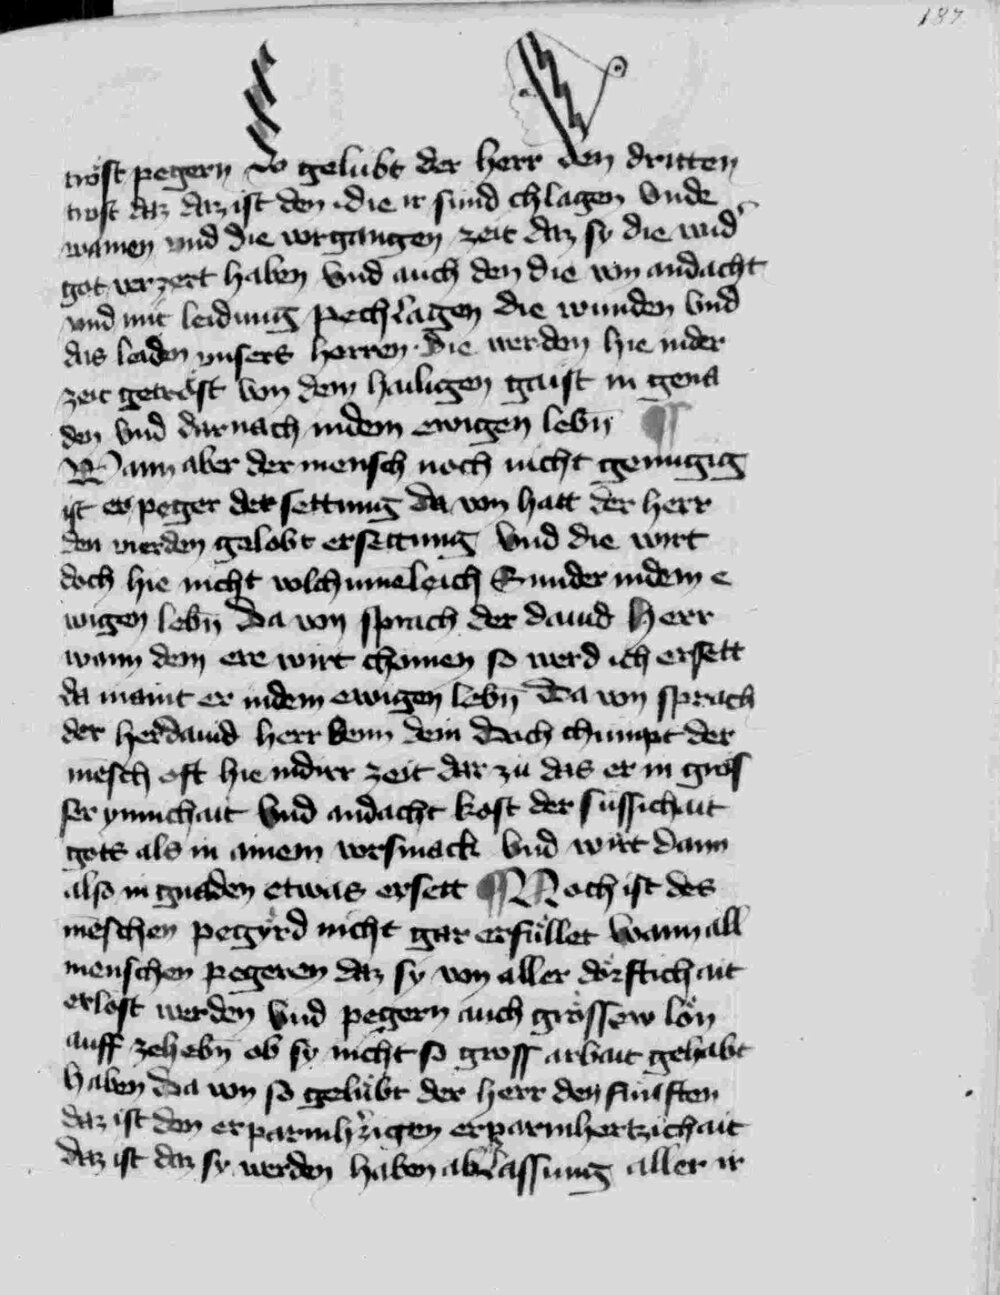 187
tröst pegern Do gelubt der herr den dritten
trost daz daz ist den die ir sünd chlagen Vnde
wainen vnd die vergangen zeit daz sy die wid͛
got verzert haben Vnd auch den die von andacht
vnd mit leidung pechlagen die wunden Vnd
das leiden vnsers herren · Die werden hie inder
zeit getröst von dem hailigen gaist in gena
den Vnd darnach indem ewigen lebn̄ ¶
Wann aber der mensch noch nicht genugig
ist er peger der settung da von hatt der herr
den vierden gelobt ersettung Vnd die wirt
doch hie nicht volchūmeleich Sunder indem e
wigen lebn̄ Da von sprach der dauid Herr
wann dein ere wirt chomen so werd ich ersett
da maint er indem ewigen lebn̄ Da von sprach
der her dauid herr kom dein Doch chumpt der
mēsch oft hie indirr zeit dar zu das er in gros
ser ynnichait Vnd andacht kost der sussichait
gots als in ainem vorsmack Vnd wirt dann
also in gnaden etwas ersett ¶ Noch ist des
mēschen pegyrd nicht gar erfüllet Wann all
menschen pegeren daz sy von aller dörftichait
erlöst werden Vnd pegern auch grössew lön
auff zehebn̄ ob sy nicht so gross arbait gehabt
haben Da von so gelübt der herr den fünften
daz ist den erparmhr̄zigen erparmhertzichait
daz ist daz sy werden haben ablassung aller ir